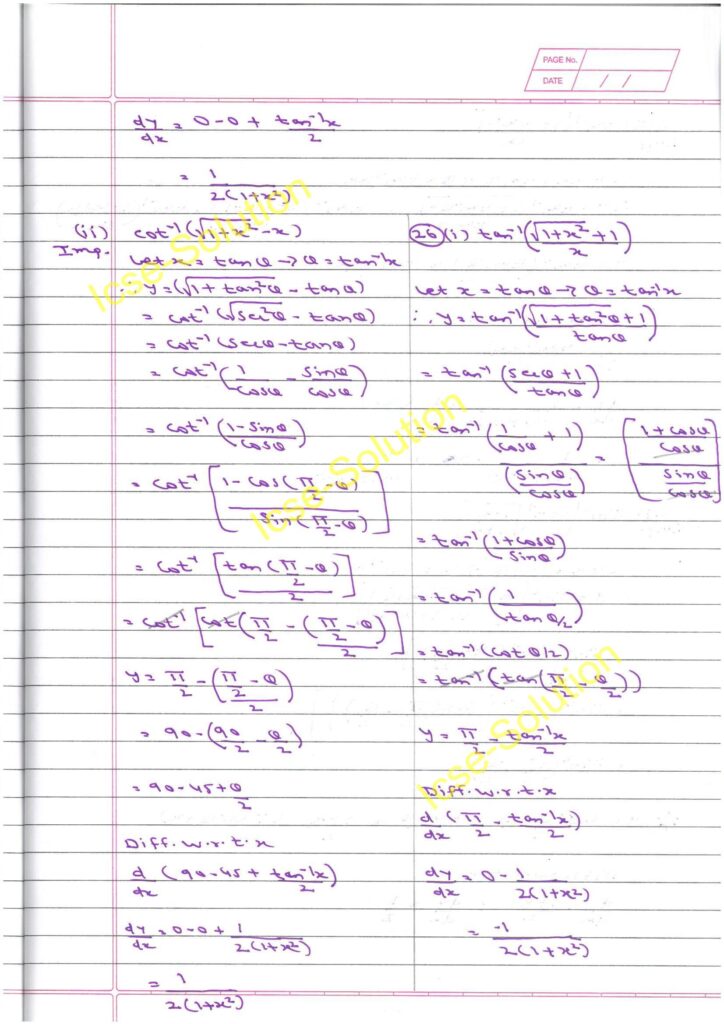 PAGE No.
DATE / /
dy/dx = 0 - 0 + tan⁻¹x/2
= 1/2(1+x²)
(ii) cot⁻¹(√1+x² - x)
Imp.
Let x = tanθ → θ = tan⁻¹x
∴ y = (√1 + tan²θ - tanθ)
= cot⁻¹(√sec²θ - tanθ)
= cot⁻¹(secθ - tanθ)
= cot⁻¹(1/cosθ - sinθ/cosθ)
= cot⁻¹(1 - sinθ/cosθ)
= cot⁻¹[1 - cos(π/2 - θ)/sin(π/2 - θ)]
= cot⁻¹[tan(π/2 - θ)/2]
= cot⁻¹[cot(π/2 - (π/2 - θ)/2)]
y = π/2 - (π/2 - θ)/2
= 90 - (90/2 - θ/2)
= 90 - 45 + θ/2
Diff. w.r.t. x
d/dx (90 - 45 + tan⁻¹x/2)
dy/dx = 0 - 0 + 1/2(1+x²)
= 1/2(1+x²)
26 (i) tan⁻¹(√1+x² + 1/x)
Let x = tanθ → θ = tan⁻¹x
∴ y = tan⁻¹(√1 + tan²θ + 1/tanθ)
= tan⁻¹(secθ + 1/tanθ)
= tan⁻¹(1/cosθ + 1)/(sinθ/cosθ) = [1 + cosθ/cosθ / sinθ/cosθ]
= tan⁻¹(1 + cosθ/sinθ)
= tan⁻¹(1/tanθ/2)
= tan⁻¹(cot θ/2)
= tan⁻¹(tan(π/2 - θ/2))
y = π/2 - tan⁻¹x/2
Diff. w.r.t. x
d/dx (π/2 - tan⁻¹x/2)
dy/dx = 0 - 1/2(1+x²)
= -1/2(1+x²)
Icse-Solution
Icse-Solution
Icse-Solution